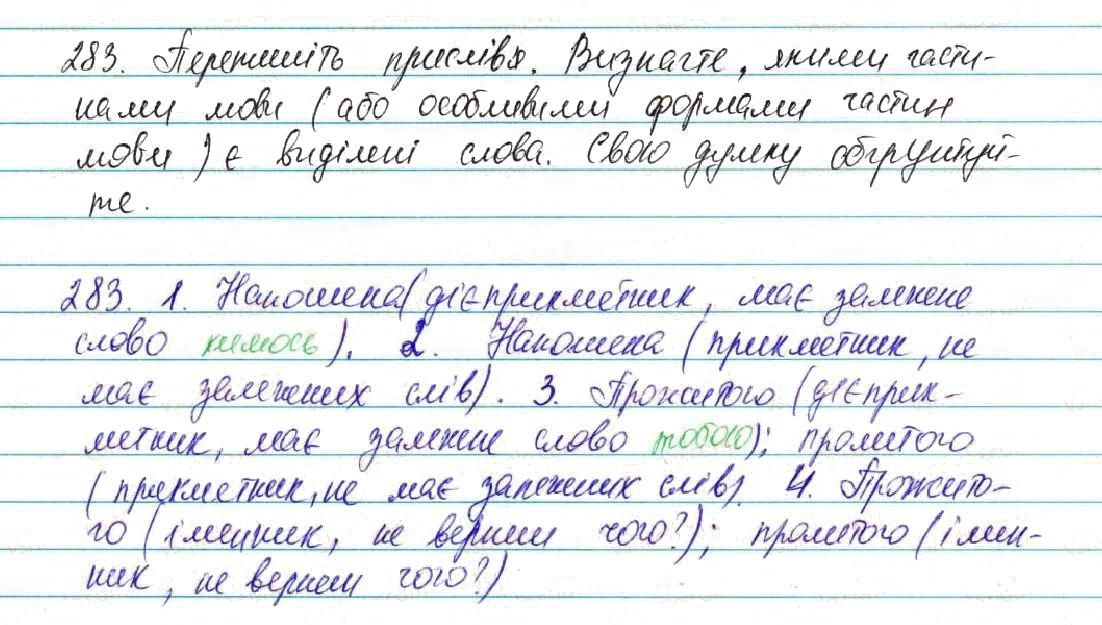 283. Перепишіть прислівя. Визначте, якими части-
нами мови (або особливими формами частин
мови) є виділені слова. Свою думку обґрунтуй-
те.
283. 1. Накошена (дієприкметник, має залежне
слово кимось). 2. Накошена (прикметник, не
має залежних слів). 3. Прожитого (дієприк-
метник, має залежне слово тобою); пролитого
(прикметник, не має залежних слів). 4. Прожито-
го (іменник, не вернеш чого?); пролитого (імен-
ник, не вернеш чого?)